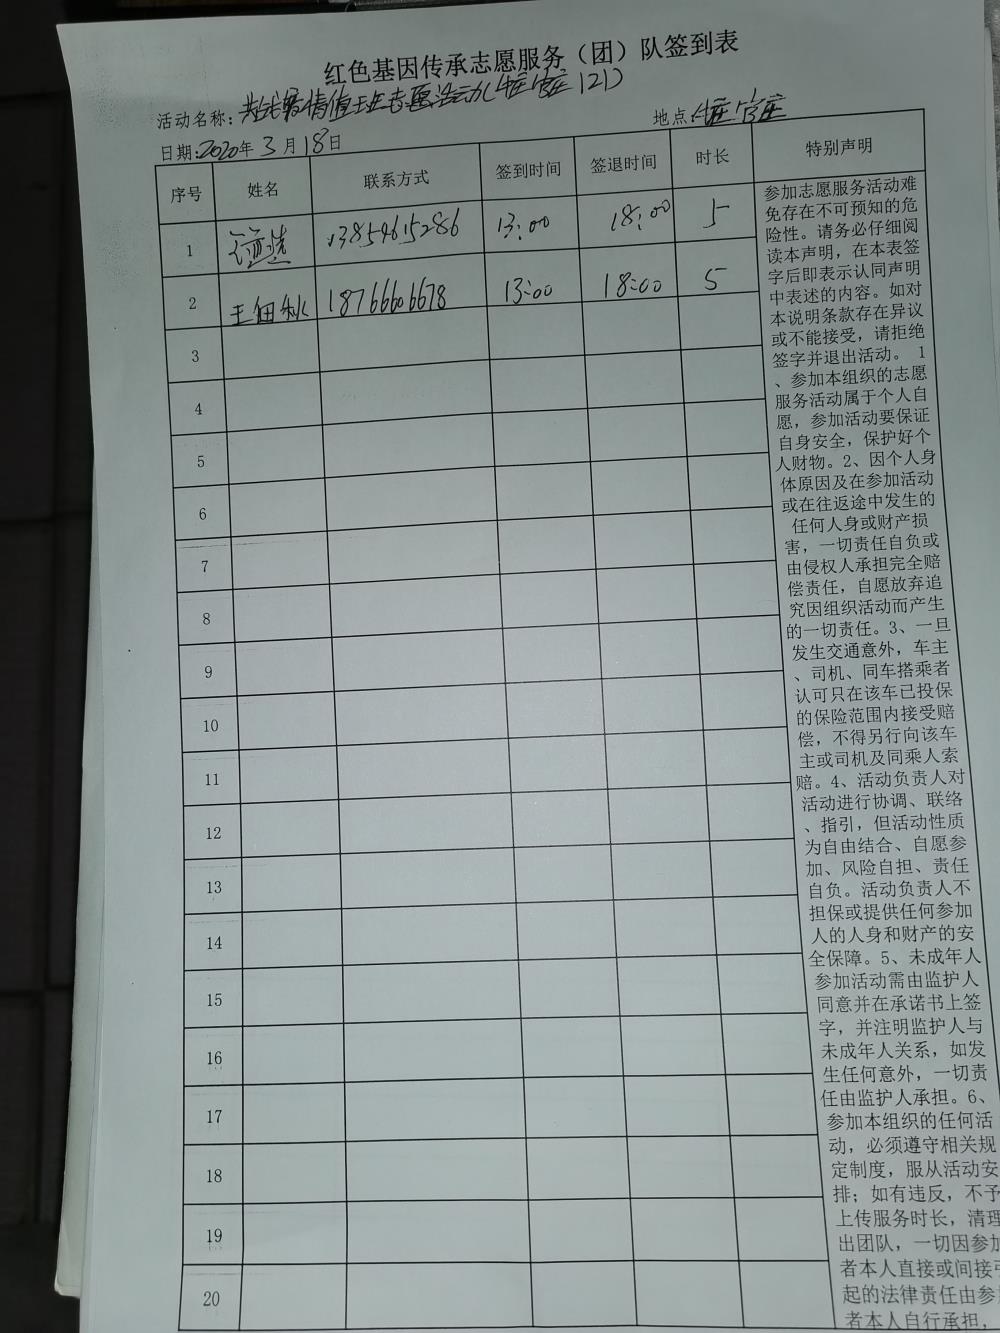 红色基因传承志愿服务（团）队签到表
活动名称：共抗疫情值班志愿活动(庄官庄121)
地点：官庄
日期：2020年3月18日
序号 姓名 联系方式 签到时间 签退时间 时长 特别声明
1 13854615286 13:00 18:00 5
2 王佃秋 18766606678 13:00 18:00 5
3
4
5
6
7
8
9
10
11
12
13
14
15
16
17
18
19
20
参加志愿服务活动难
免存在不可预知的危
险性。请务必仔细阅
读本声明，在本表签
字后即表示认同声明
中表述的内容。如对
本说明条款存在异议
或不能接受，请拒绝
签字并退出活动。 1
、参加本组织的志愿
服务活动属于个人自
愿，参加活动要保证
自身安全，保护好个
人财物。2、因个人身
体原因及在参加活动
或在往返途中发生的
任何人身或财产损
害，一切责任自负或
由侵权人承担完全赔
偿责任，自愿放弃追
究因组织活动而产生
的一切责任。3、一旦
发生交通意外，车主
、司机、同车搭乘者
认可只在该车已投保
的保险范围内接受赔
偿，不得另行向该车
主或司机及同乘人索
赔。4、活动负责人对
活动进行协调、联络
、指引，但活动性质
为自由结合、自愿参
加、风险自担、责任
自负。活动负责人不
担保或提供任何参加
人的人身和财产的安
全保障。5、未成年人
参加活动需由监护人
同意并在承诺书上签
字，并注明监护人与
未成年人关系，如发
生任何意外，一切责
任由监护人承担。6、
参加本组织的任何活
动，必须遵守相关规
定制度，服从活动安
排；如有违反，不予
上传服务时长，清理
出团队，一切因参加
者本人直接或间接引
起的法律责任由参
者本人自行承担，